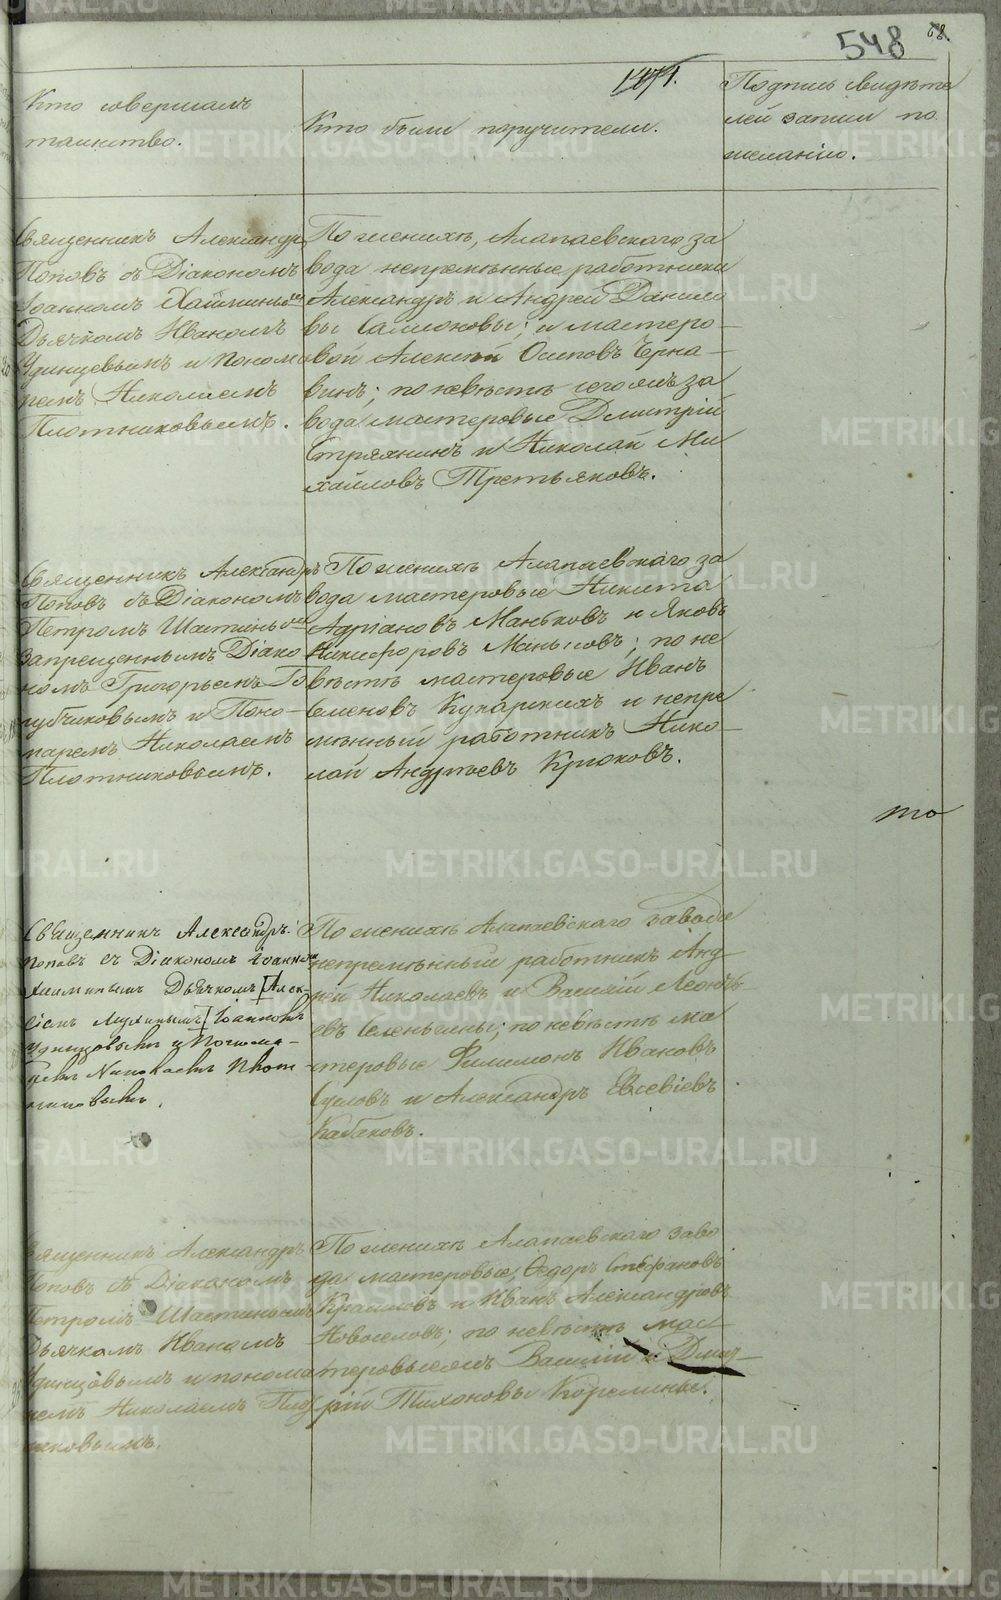 548
68.
1871.
Кто совершалъ
таинство.
Кто были поручители.
Подпись свидѣте
лей записи по
желанію.
Священникъ Александръ
Поповъ съ Діакономъ
Іоанномъ
Дьячкомъ Иваномъ
Удинцевымъ и Понома
ремъ Николаемъ
Плотниковымъ.
По женихѣ, Алапаевскаго за
вода непремѣнные работники
Александръ и Андрей Данило
вы Самсоновы; и мастеро-
вой Алексѣй Осиповъ Черна-
винъ; по невѣстѣ, того жъ за
вода мастеровые Дмитрій
Стряхнинъ и Николай Ми
хайловъ Третьяковъ.
Священникъ Александръ
Поповъ съ Діакономъ
Петромъ
Запрещеннымъ Діако
номъ Григорьемъ Го
лубчиковымъ и Поно-
маремъ Николаемъ
Плотниковымъ.
По женихѣ Алапаевскаго за
вода мастеровые Никита
Адріановъ Маньковъ и Яковъ
Никифоровъ; по не
вѣстѣ мастеровые Иванъ
Семеновъ и непре
мѣнный работникъ Нико-
лай Андреевъ Крюковъ.
то
Священникъ Александръ
Поповъ съ Діакономъ Іоанном
Дьячкомъ [Алек-
сіемъ] Іоанномъ
Удинцовымъ и Понома-
ремъ Николаемъ Плот
никовымъ.
По женихѣ Алапаевскаго завода
непремѣнный работникъ Анд
рей Николаевъ и Василій Леонтьевъ
по невѣстѣ ма
стеровые Филимонъ Ивановъ
Сусловъ и Александръ Евсевіевъ
Кабаковъ.
Священникъ Александръ
Поповъ съ Діакономъ
Петромъ
Дьячкомъ Иваномъ
Удинцовымъ и понома
ремъ Николаемъ Плот
никовымъ.
По женихѣ Алапаевскаго заво
да мастеровые, Ѳедоръ Стефановъ
и Иванъ Александровъ
Новоселовъ; по невѣстѣ мас
теровые Василій и Дмит-
рій Тихоновы
METRIKI.GASO-URAL.RU